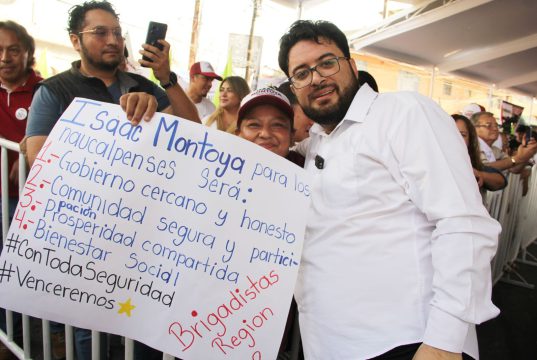 Isaac Montoya para los
naucalpenses será:
1.- Gobierno cercano y honesto
2.- Comunidad segura y partici-
pación
3.- Prosperidad compartida
4.- Bienestar Social
#ConTodaSeguridad
#Venceremos
Brigadistas
Region